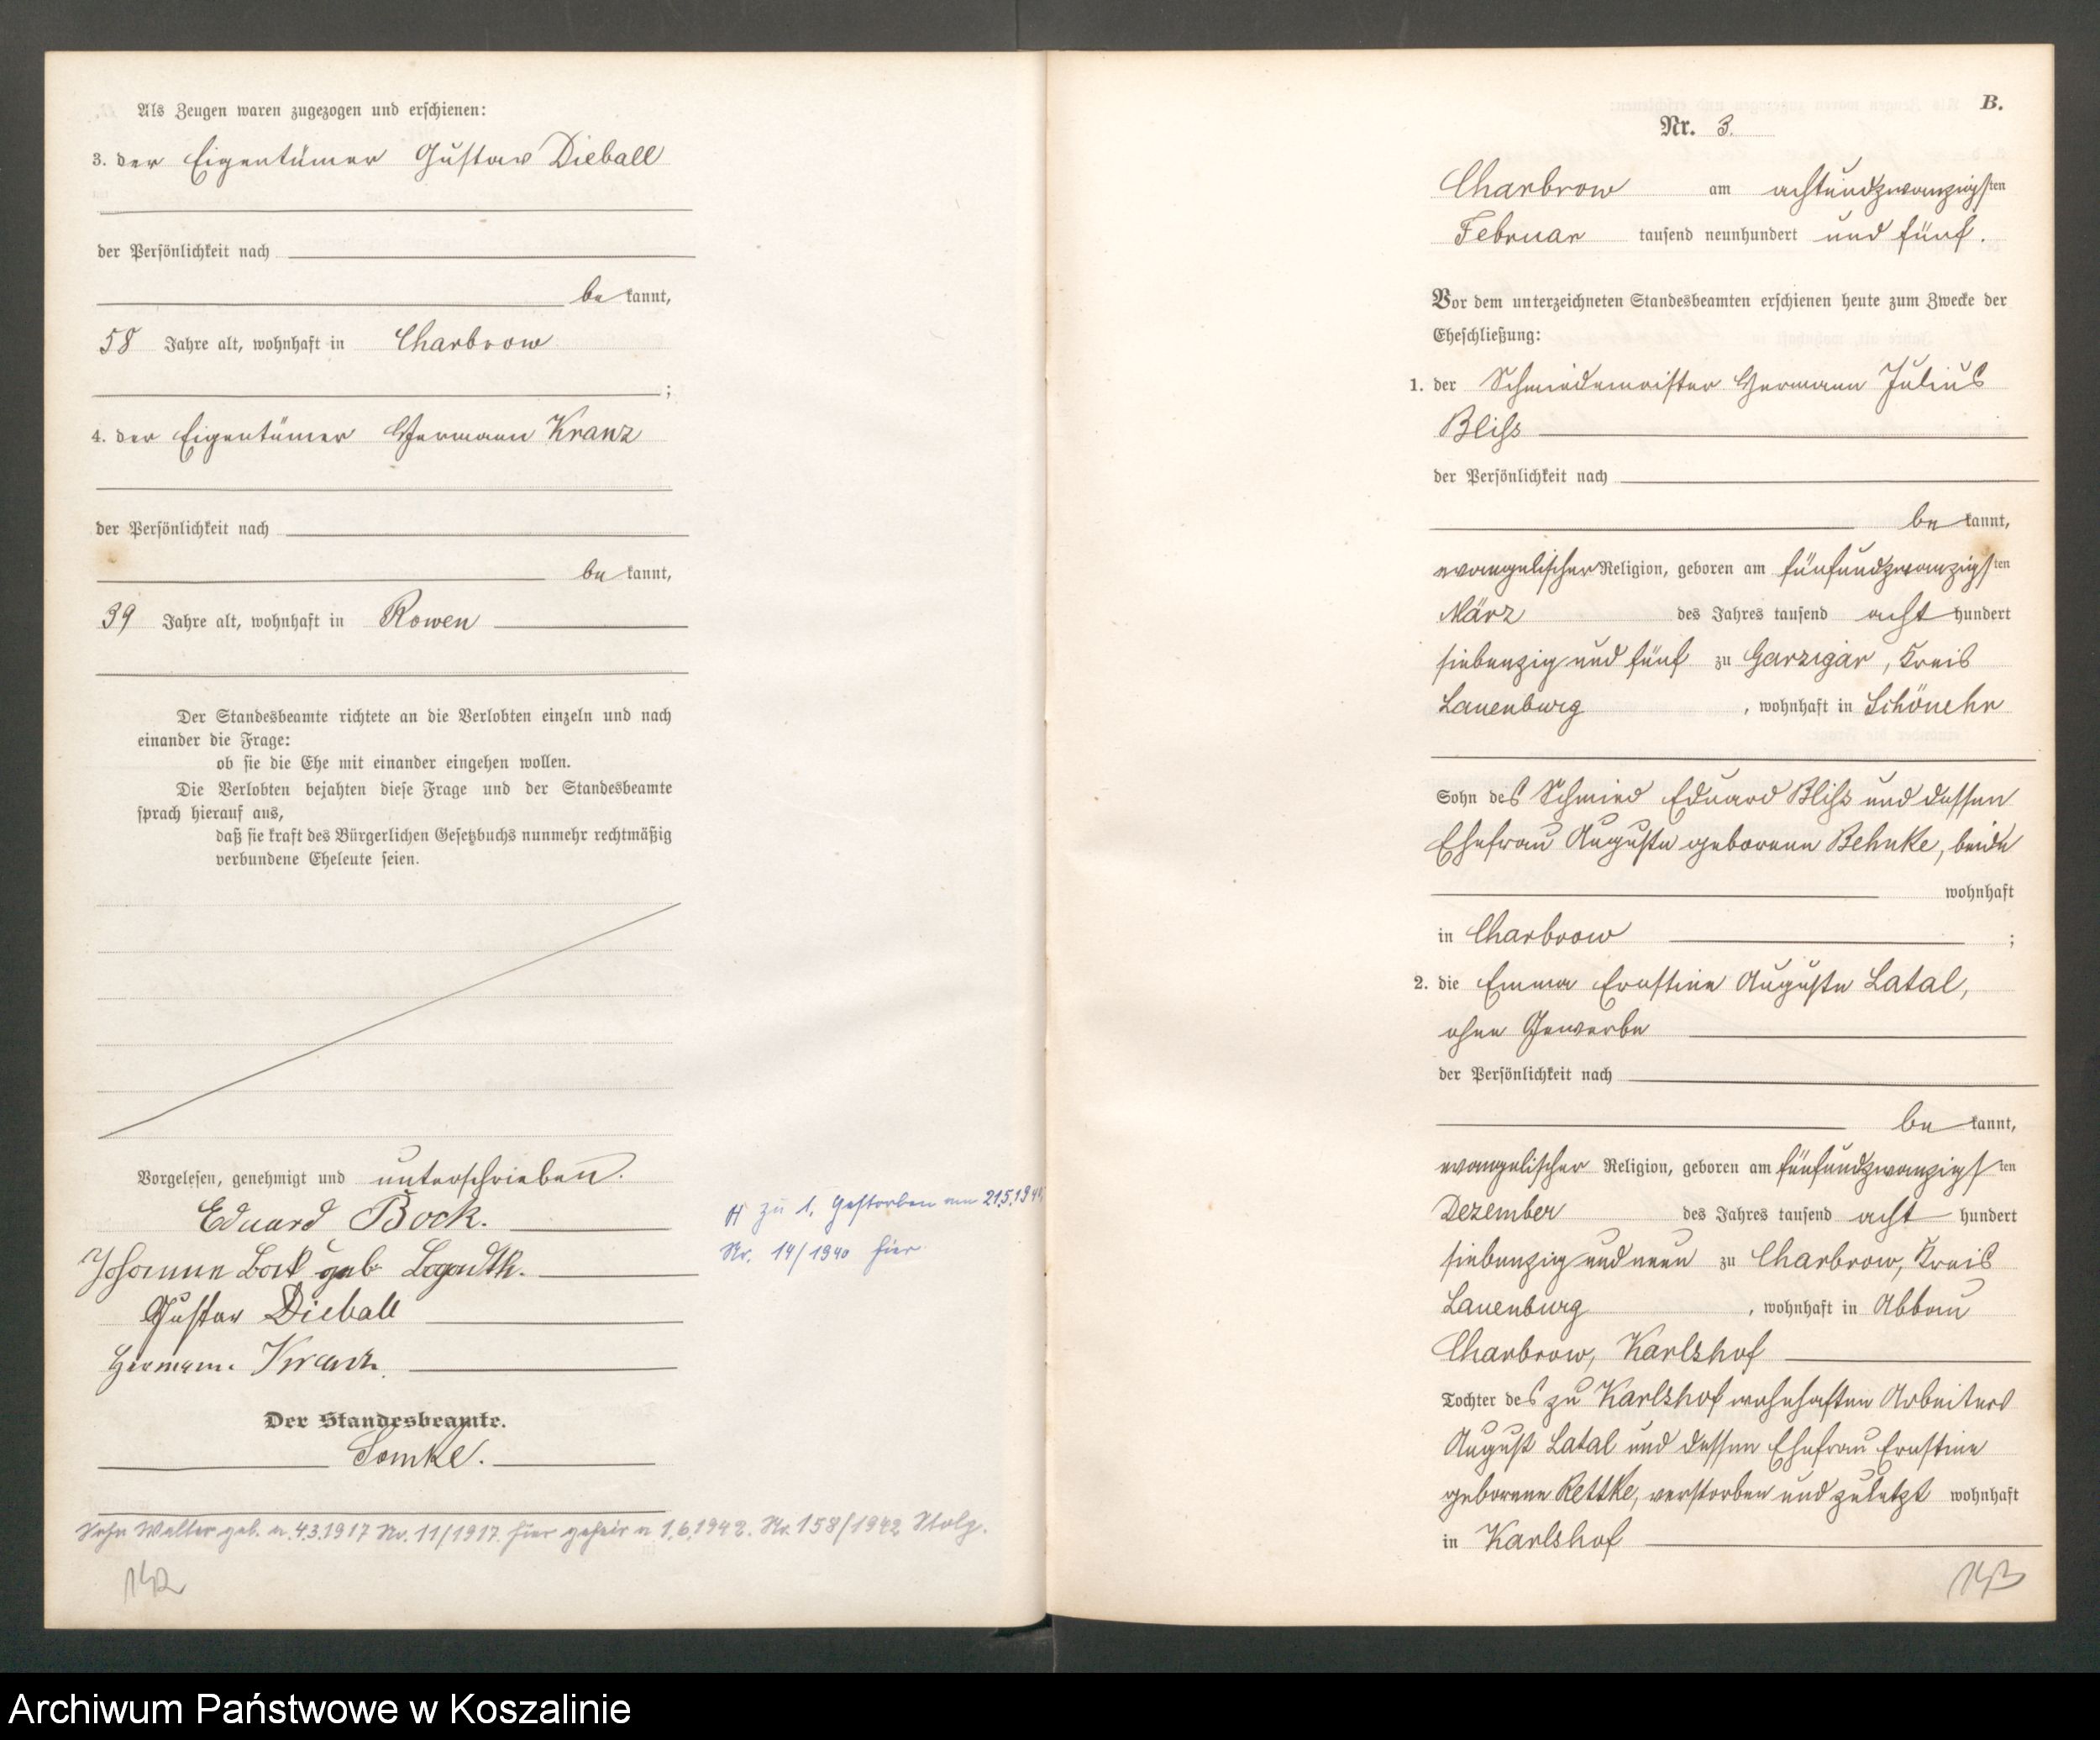 Als Zeugen waren zugezogen und erschienen:
3. der Eigentümer Gustav Dieball
der Persönlichkeit nach
be kannt,
58 Jahre alt, wohnhaft in Charbrow
;
4. der Eigentümer Hermann Kranz
der Persönlichkeit nach
be kannt,
39 Jahre alt, wohnhaft in Rowen
Der Standesbeamte richtete an die Verlobten einzeln und nach
einander die Frage:
ob sie die Ehe mit einander eingehen wollen.
Die Verlobten bejahten diese Frage und der Standesbeamte
sprach hierauf aus,
daß sie kraft des Bürgerlichen Gesetzbuchs nunmehr rechtmäßig
verbundene Eheleute seien.
Vorgelesen, genehmigt und unterschrieben.
Eduard Bock.
Johanne Bock geb.
Gustav Dieball
Hermann Kranz.
Der Standesbeamte.
H zu 1. Gestorben am 21.5.
Nr. 14/1940 hier.
Sohn Walter geb. a. 4.3.1917 Nr. 11/1917. hier geheir. a. 1.6.1942. Nr. 158/1942 Stolp.
142
B.
Nr. 3.
Charbrow am achtundzwanzigsten
Februar tausend neunhundert und fünf.
Vor dem unterzeichneten Standesbeamten erschienen heute zum Zwecke der
Eheschließung:
1. der Schmiedemeister Hermann Julius
Bliss
der Persönlichkeit nach
be kannt,
evangelischer Religion, geboren am fünfundzwanzigsten
März des Jahres tausend acht hundert
siebenzig und fünf zu Garzigar, Kreis
Lauenburg, wohnhaft in Schönehr
Sohn des Schmied Eduard Bliss und dessen
Ehefrau Auguste geborene Behnke, beide
wohnhaft
in Charbrow ;
2. die Emma Ernstine Auguste Latal,
ohne Gewerbe
der Persönlichkeit nach
be kannt,
evangelischer Religion, geboren am fünfundzwanzigsten
Dezember des Jahres tausend acht hundert
siebenzig und neun zu Charbrow, Kreis
Lauenburg, wohnhaft in Abbau
Charbrow, Karlshof
Tochter des zu Karlshof wohnhaften Arbeiters
August Latal und dessen Ehefrau Ernstine
geborene Rettke, verstorben und zuletzt wohnhaft
in Karlshof
143
Archiwum Państwowe w Koszalinie